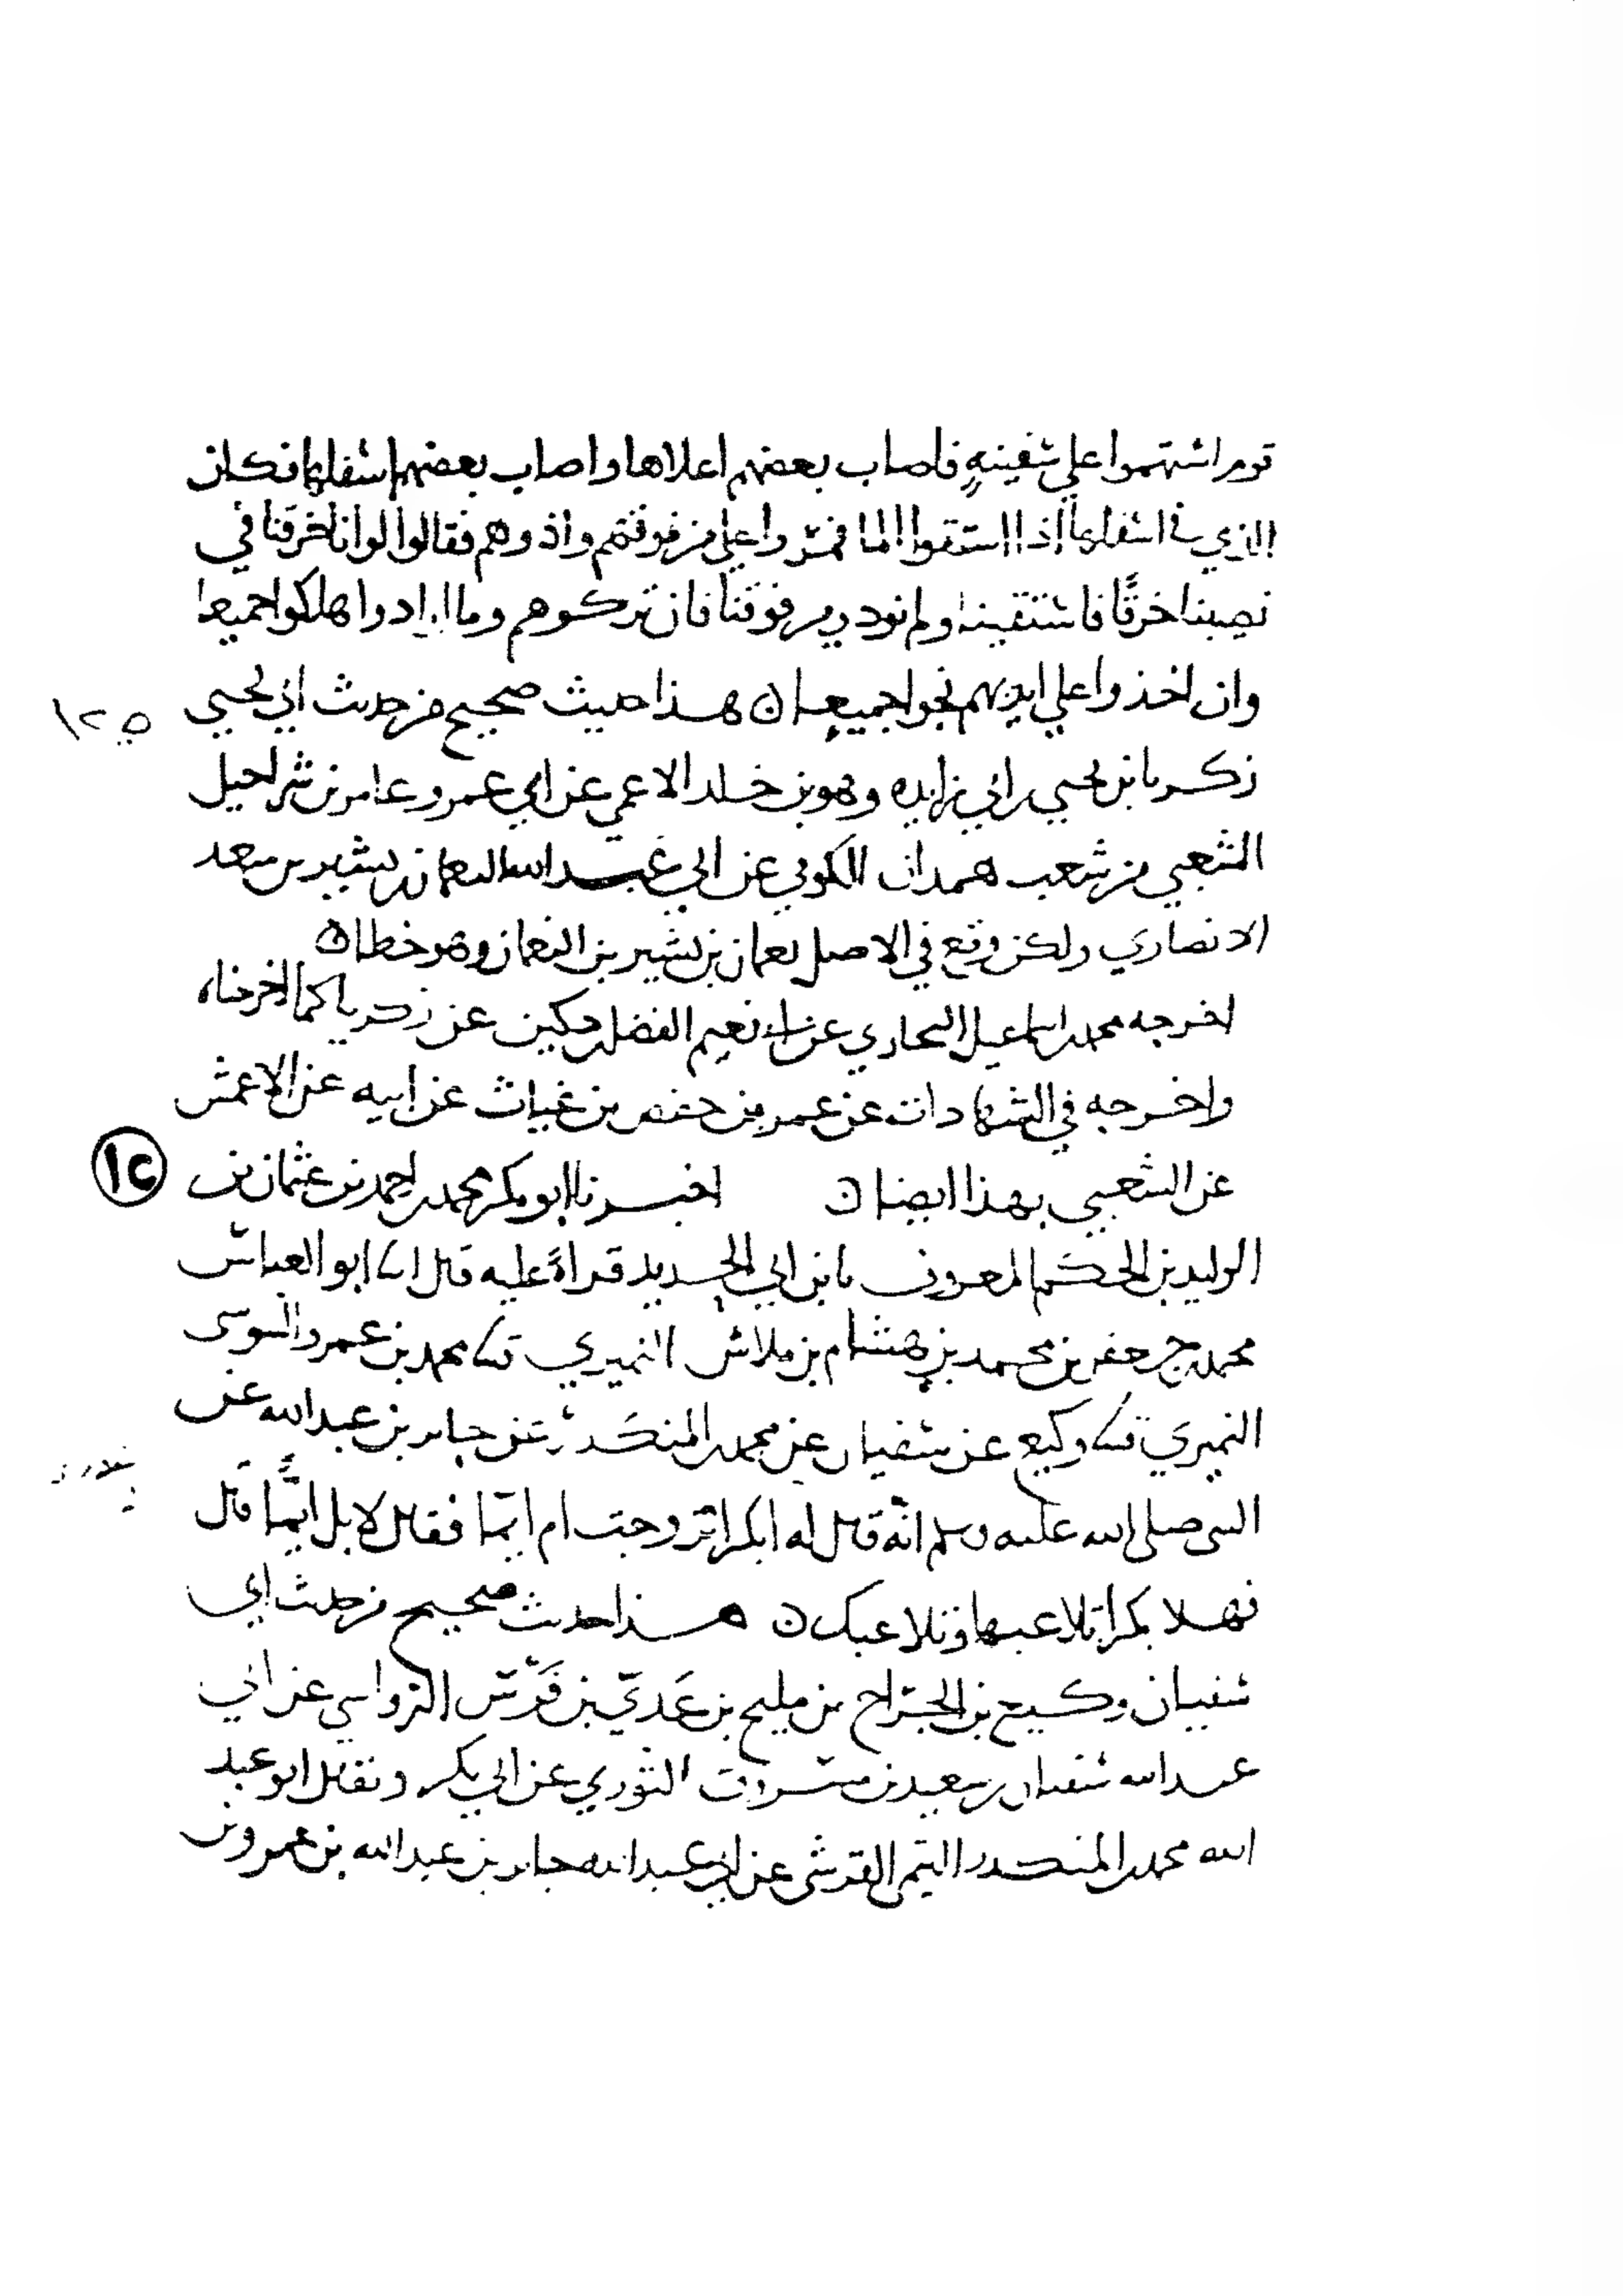 قوم استهموا علي سفينةٍ فاصاب بعضهم اعلاها واصاب بعضهم اسفلها فكان
الذي في اسفلها اذا استقوا الما فمرّوا علي من فوقهم واذوهم فقالوا لو انا خرقنا في
نصيبنا خرقًا فاستقينا ولم نوذ من فوقنا فان تركوهم وما ارادوا هلكوا جميعا
وان اخذوا علي ايديهم نجوا جميعا ن هذا حديث صحيح من حديث ابي يحيي
زكريا بن يحيي بن ابي زايده وهو بن خلد الاعمي عن ابي عمرو عامر بن شراحيل
الشعبي من شعب همدان الكوفي عن ابي عبد الله النعمان بن بشير بن سعد
الانصاري ولكن وقع في الاصل نعمان بن بشير بن النعمان وهو خطا ن
اخرجه محمد بن اسماعيل البخاري عن ابي نعيم الفضل بن دكين عن زكريا كما اخرجناه
واخرجه في الشهادات عن عمر بن حفص بن غياث عن ابيه عن الاعمش
عن الشعبي بهذا ايضا ن اخبرنا ابو بكر محمد بن احمد بن عثمان بن
١٢
الوليد بن الحكم المعروف بابن ابي الحديد قراةً عليه قال انا ابو العباس
محمد بن جعفر بن محمد بن هشام بن ملاس النميري ثنا محمد بن عمرو السوسي
النميري ثنا وكيع عن سفيان عن محمد بن المنكدر عن جابر بن عبد الله عن
النبي صلى الله عليه وسلم انّه قال له ابكرا تزوجت ام ايّما فقال لا بل ايّمًا قال
فهلا بكرا تلاعبها وتلاعبك ن هذا حديث صحيح من حديث ابي
سفيان وكيع بن الجرّاح بن مليح بن عَديّ بن فَرَس الرواسي عن ابي
عبد الله سفيان بن سعيد بن مسروق الثوري عن ابي بكر ويقال ابو عبد
الله محمد بن المنكدر التيمي القرشي عن ابي عبد الله جابر بن عبد الله بن عمرو بن